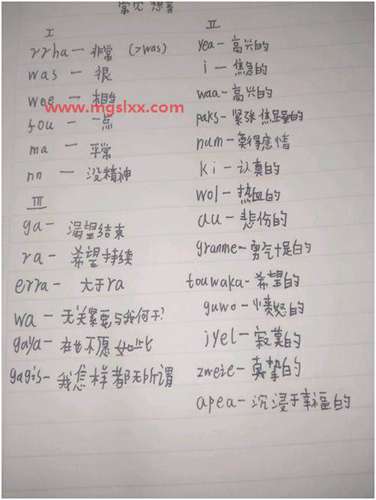 常见 想音
I
rrha — 非常 (>was)
was — 很
wee — 相当
www.mgslxx.com
fou — 一点
ma — 平常
nn — 没精神
III
ga — 渴望结束
ra — 希望持续
erra — 大于ra
wa — 无关紧要与我何干?
gaya — 再也不愿如此
gagis — 我怎样都无所谓
II
yea — 高兴的
i — 焦急的
waa — 高兴的
paks — 紧张
num — 莫得感情
ki — 认真的
wol — 热血的
au — 悲伤的
granme — 勇气十足的
touwaka — 希望的
guwo — 愤怒的
jyel — 寂寞的
zweie — 真挚的
apea — 沉浸于幸福的